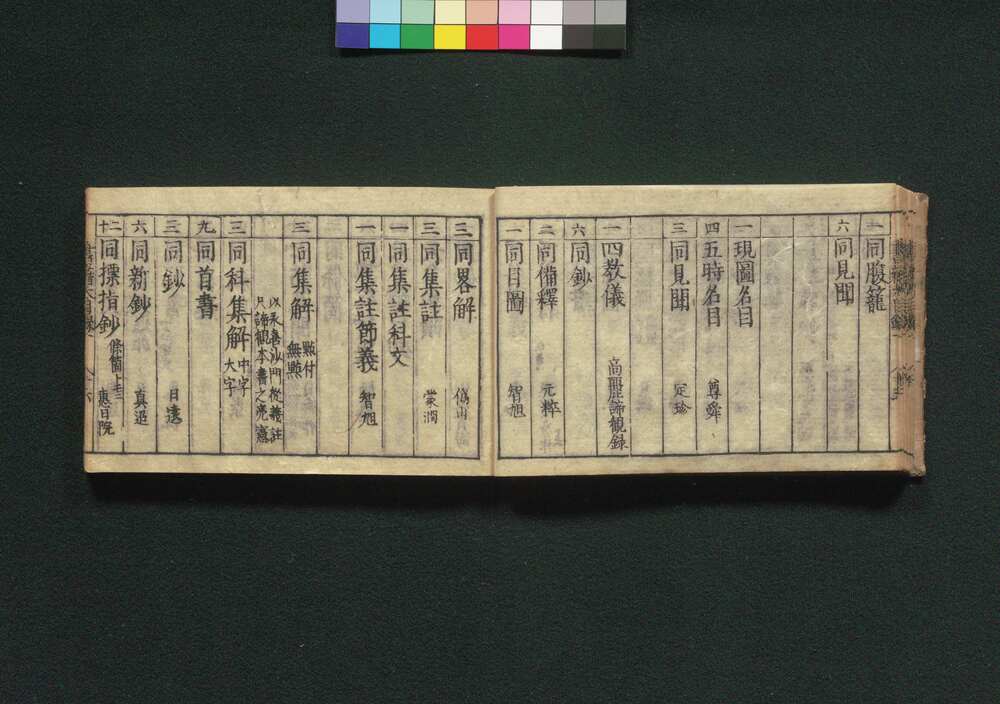 一 同腹籠
六 同見聞
一 現圖名目
四 五時名目 尊舜
三 同見聞 定珍
一 四教儀 高麗諦観録
六 同鈔
二 同備釋 元粹
一 同目圖 智旭
三 同畧解
三 同集註 蒙潤
一 同集註科文
一 同集註節義 智旭
三 同集解 點付 無點
以永嘉沙門從義註
只諦観本書之
三 同科集解 中字 大字
九 同首書
三 同鈔 日遠
六 同新鈔 真迢
十二 同標指鈔 條箇 惠日院